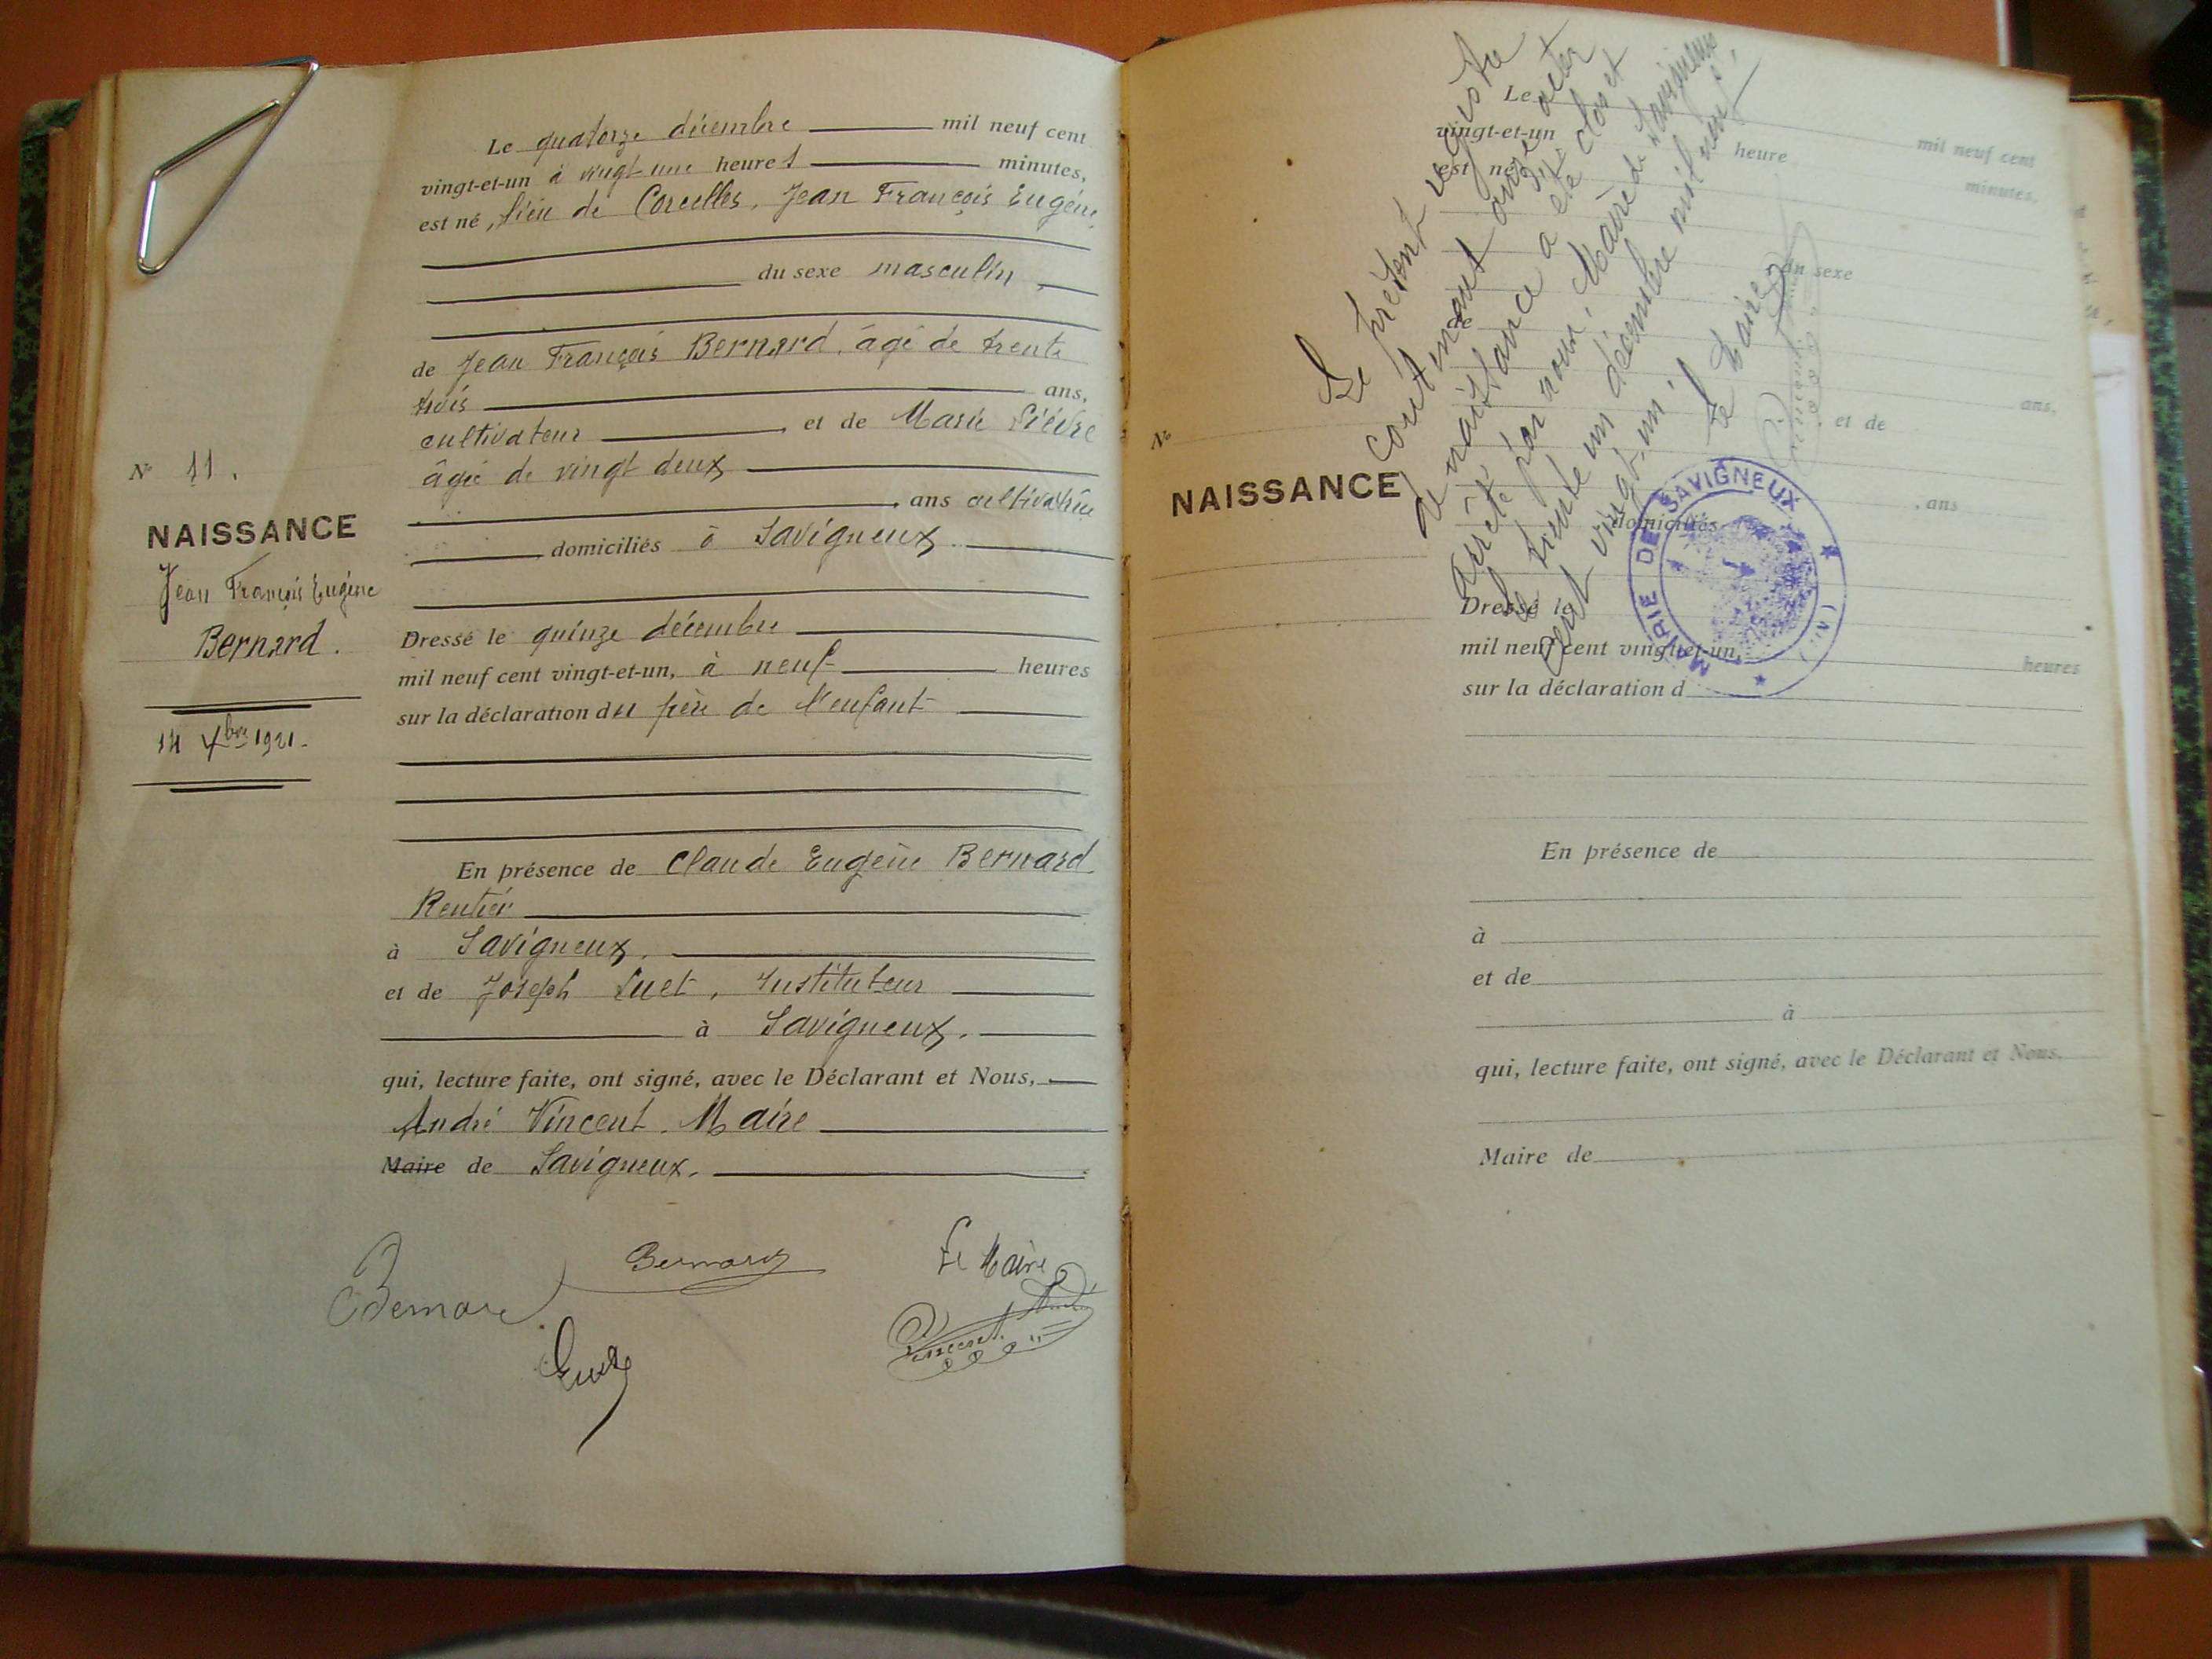 Le quatorze décembre mil neuf cent
vingt-et-un à vingt une heures minutes,
est né, lieu de Corcelles, Jean François Eugène
du sexe masculin
de Jean François Bernard, âgé de trente
trois ans,
cultivateur, et de Marie Lièvre
âgée de vingt deux
, ans cultivatrice
domiciliés à Savigneux
Dressé le quinze décembre
mil neuf cent vingt-et-un, à neuf heures
sur la déclaration du père de l'enfant
En présence de Claude Eugène Bernard
Rentier
à Savigneux.
et de Joseph Luet, Instituteur
à Savigneux.
qui, lecture faite, ont signé, avec le Déclarant et Nous,
André Vincent, Maire
Maire de Savigneux.
Bernard
Bernard
Le Maire
Luet
Vincent
N° 11.
NAISSANCE
Jean François Eugène
Bernard.
14 Xbre 1921.
Le présent registre
contenant onze actes
de naissance a été clos et
arrêté par nous, Maire de Savigneux
le trente un décembre mil neuf
cent vingt-un.
Le Maire
Vincent
MAIRIE DE SAVIGNEUX
Le mil neuf cent
vingt-et-un heure minutes,
est né
du sexe
de
ans,
, et de
, ans
domiciliés
N°
NAISSANCE
Dressé le
mil neuf cent vingt-et-un, heures
sur la déclaration d
En présence de
à
et de
à
qui, lecture faite, ont signé, avec le Déclarant et Nous,
Maire de